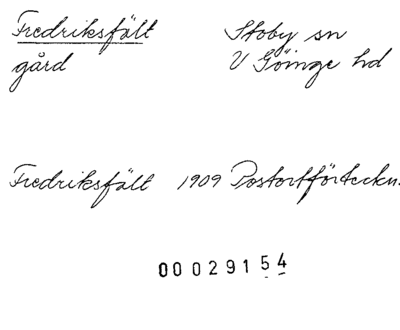 Fredriksfält Stoby sn
gård V Göinge hd
Fredriksfält 1909 Postortförteckn.
00029154